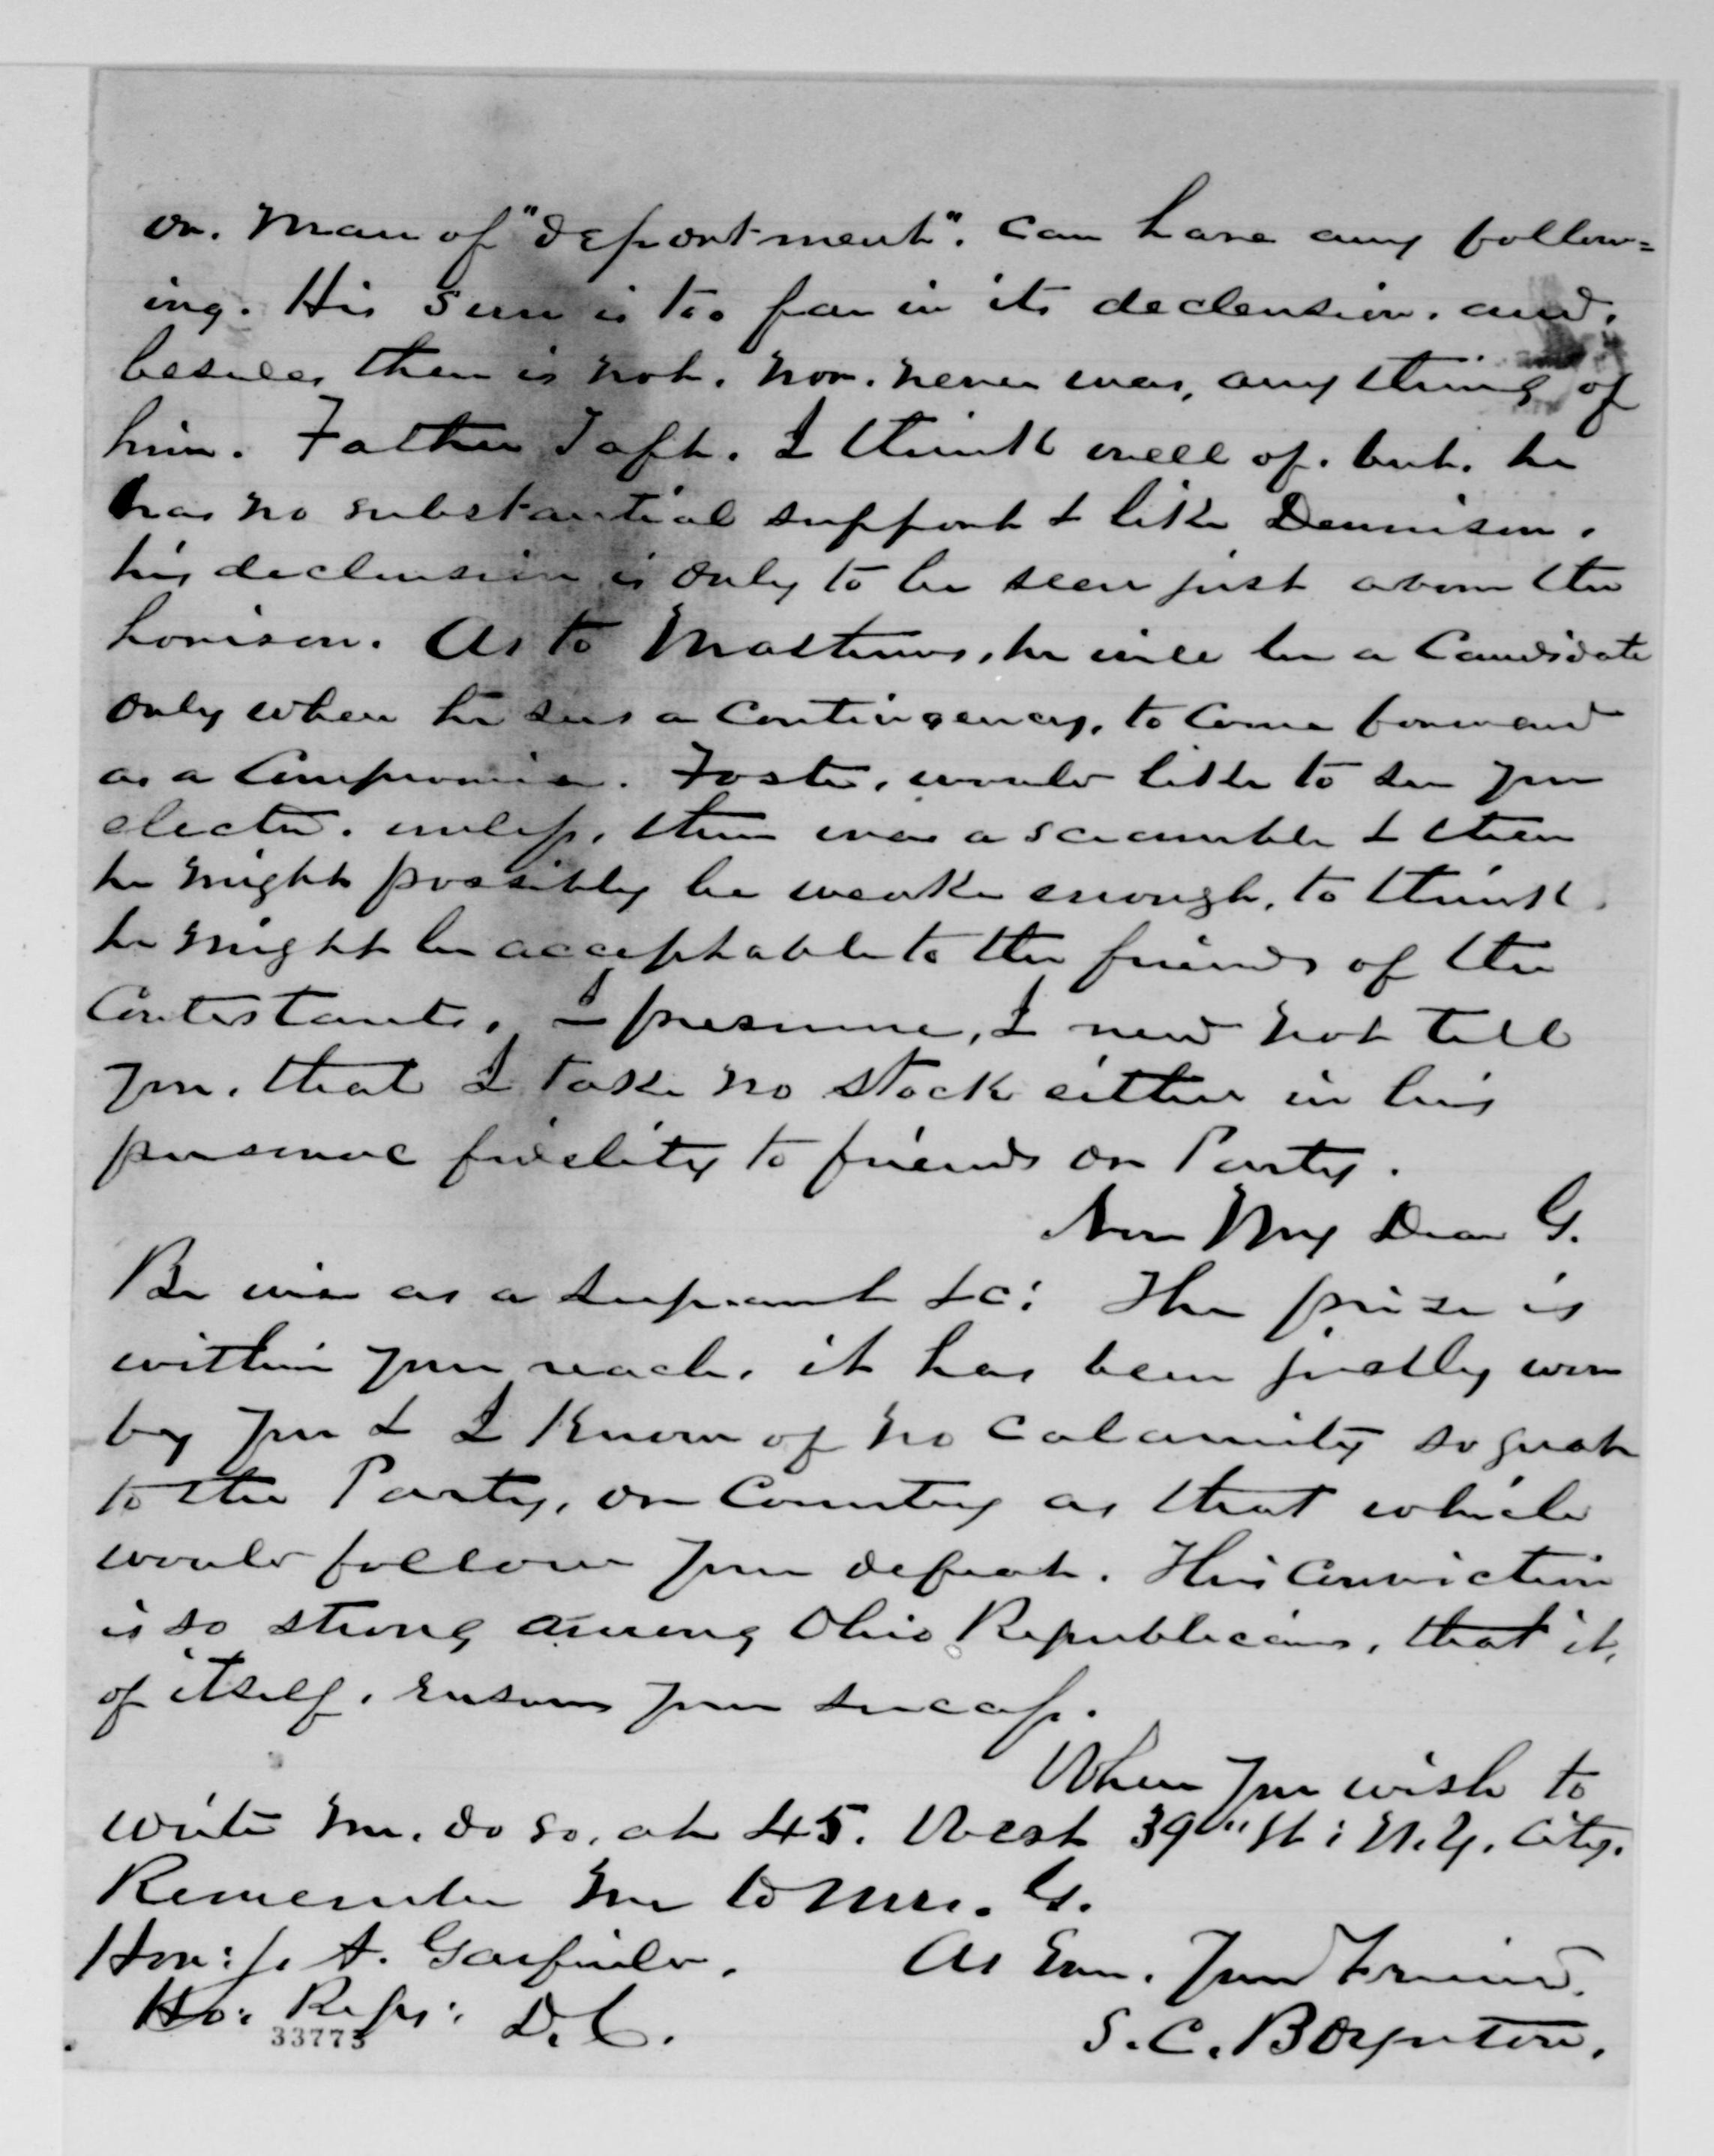 or. Man of "deportment". can have any follow=
ing. His sun is too far in its declension. and.
besides there is not. nor. never was, any thing of
him. Father Taft. I think well of. but. he
has no substantial support & like Dennison.
his declension is only to be seen just above the
horison. As to Matthews, he will be a Candidate
only when he sees a Contingency, to Come forward
as a Compromise. Foster, would like to see you
elected. unless, there was a scramble & then
he might possibly be weake enough, to think.
he might be acceptable to the friends of the
Contestants. I presume, I need not tell
you. that I take no stock either in his
personal fidelity to friends or Party.
Now My Dear G.
Be wise as a serpeant &c: The prize is
within your reach. it has been justly won
by you & I Know of no Calamity so great
to the Party, or Country as that which
would follow your defeat. This Conviction
is so strong among Ohio Republicans, that it,
of itself. ensures your success.
When you wish to
write me. do so. at 45. West 39" St: N.Y. City.
Remember me to Mrs. G.
Hon: J. A. Garfield.
As Ever. Your Friend.
Ho: Reps: D.C.
S. C. Boynton.
33773